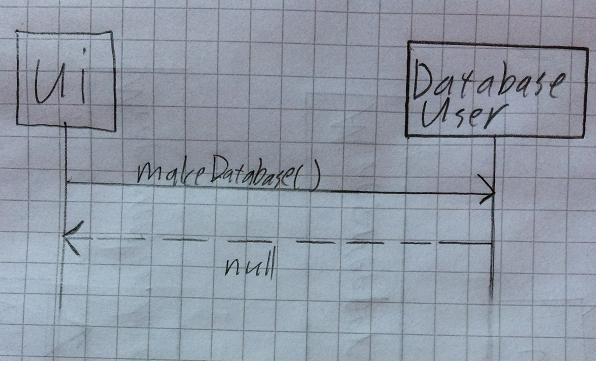 Ui
Database
User
makeDatabase()
null